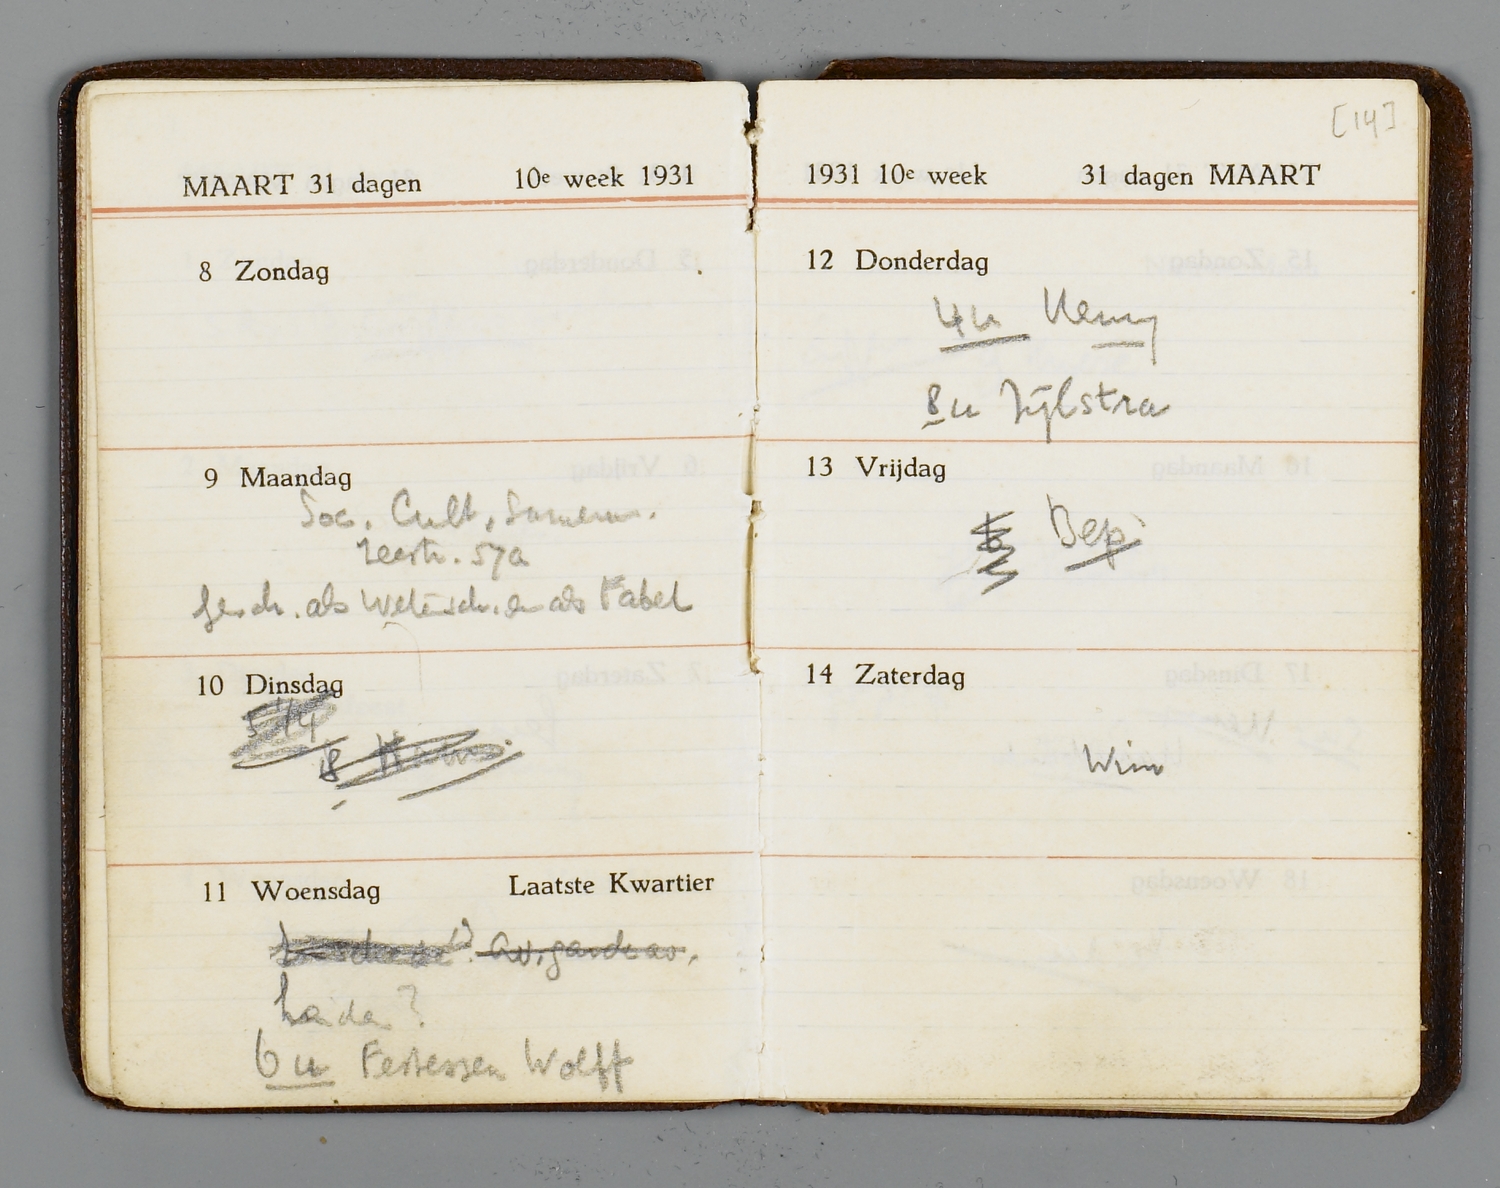 MAART 31 dagen 10e week 1931
8 Zondag
9 Maandag
Soc. Cult.
57a
als Wetensch. en als Fabel
10 Dinsdag
5 1/4
8
11 Woensdag Laatste Kwartier
6 u Festessen Wolff
[14]
1931 10e week 31 dagen MAART
12 Donderdag
4 u
8 u Zijlstra
13 Vrijdag
Bep
14 Zaterdag
Wim